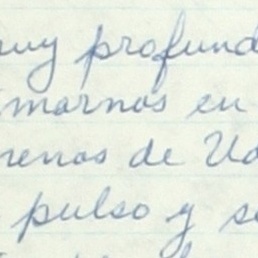 muy profund
marnos en
renos de Va
pulso y se